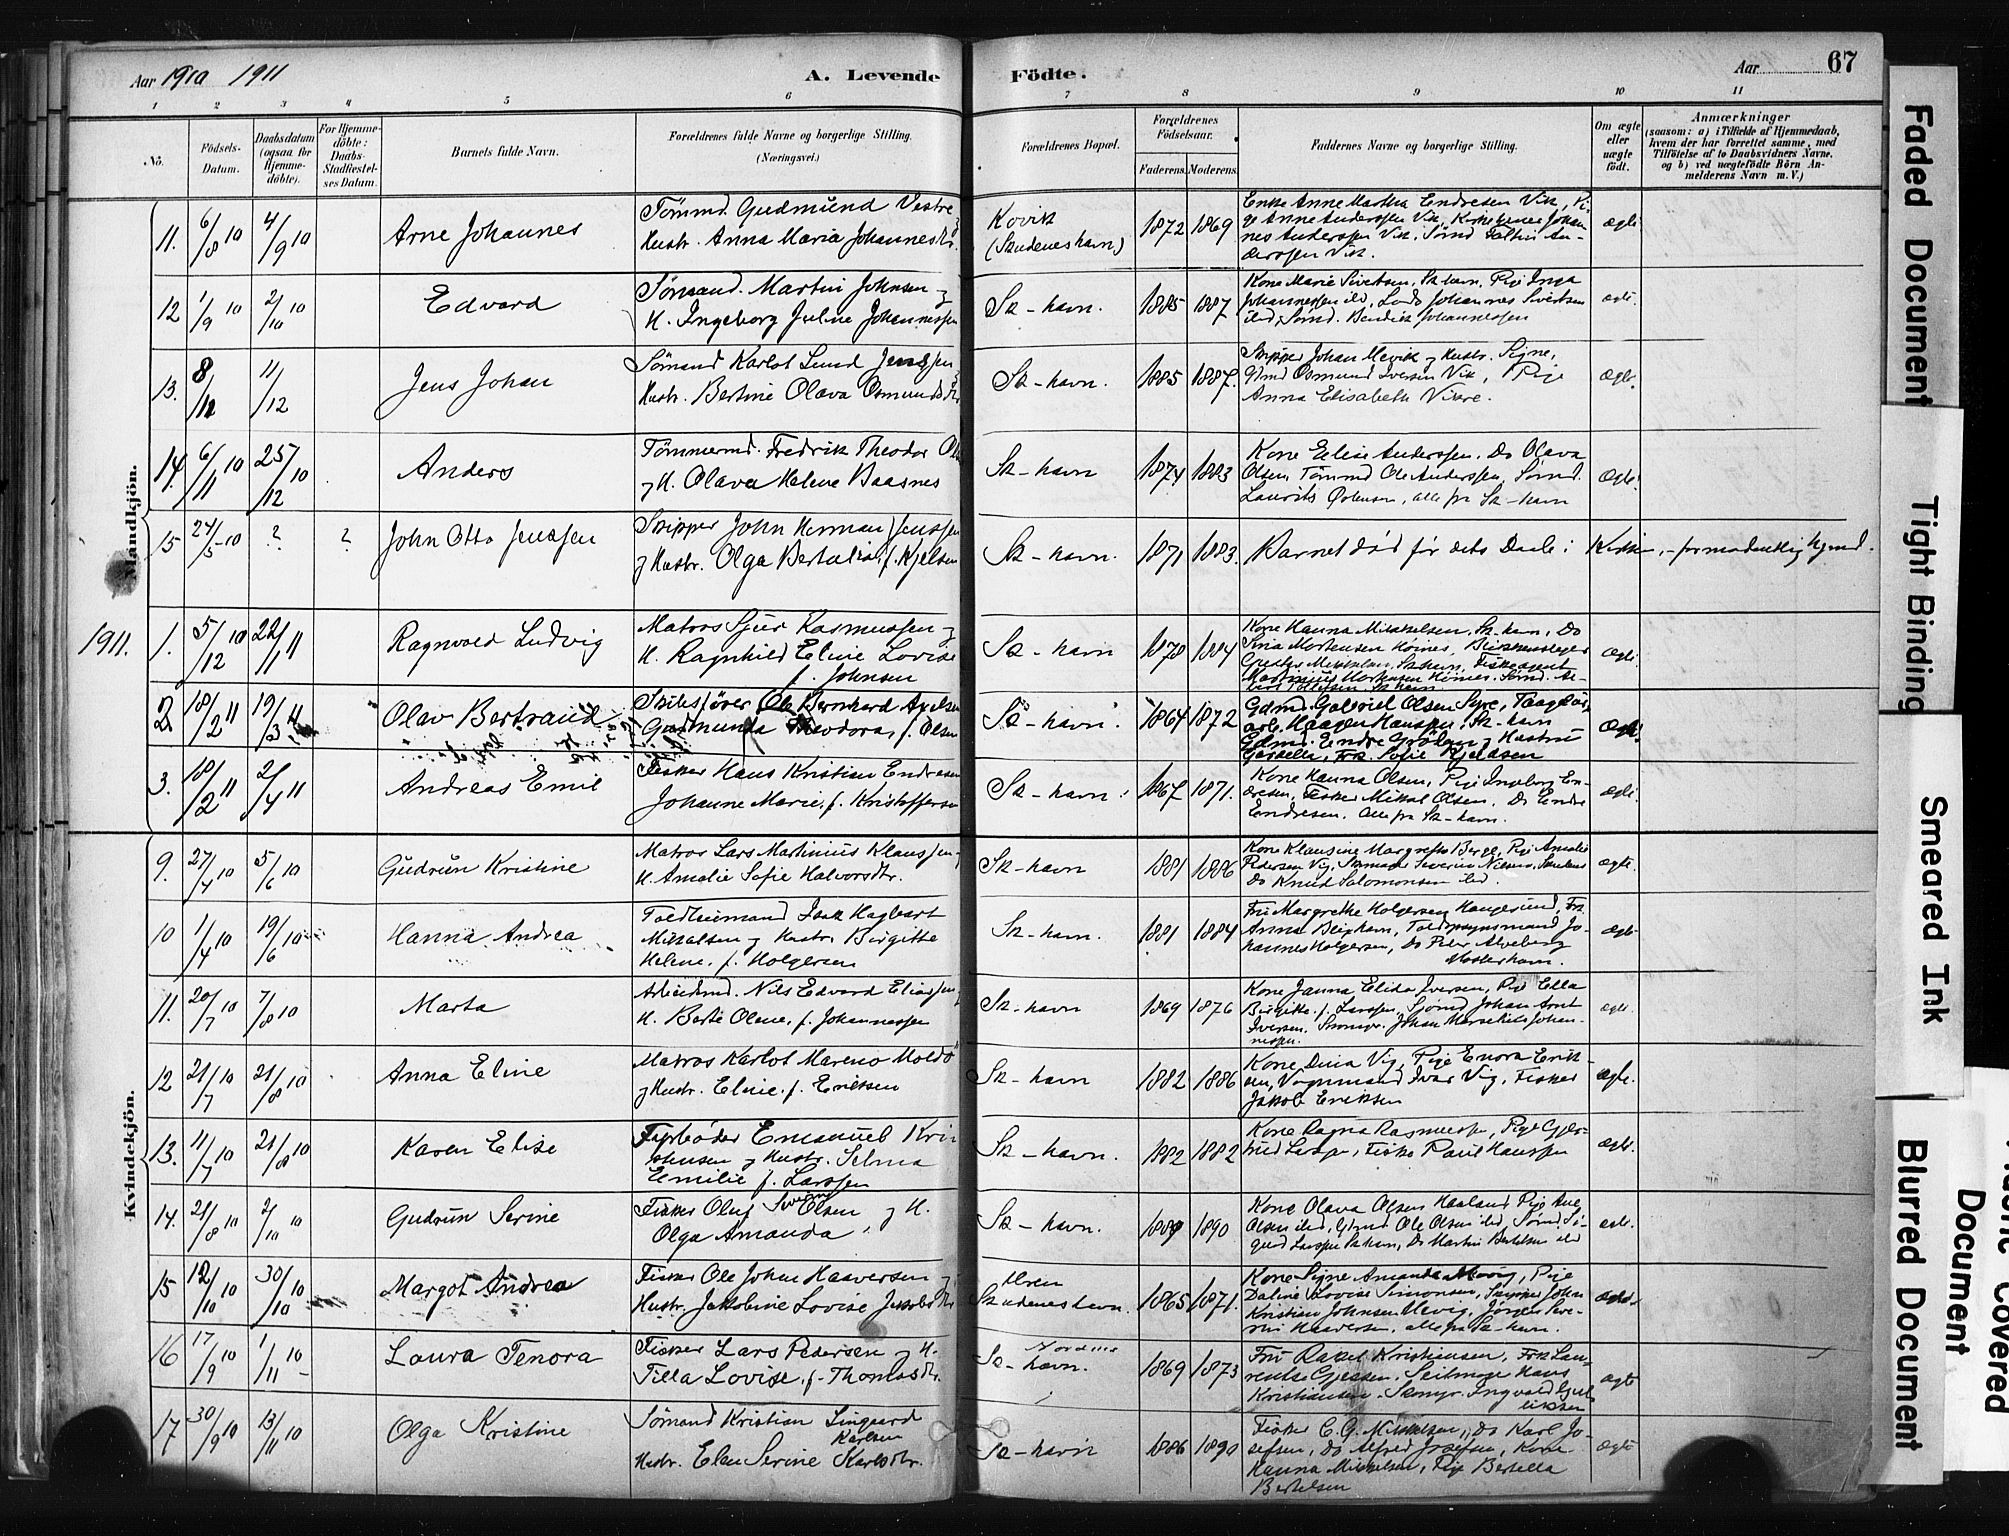 Aar 1910 1911
A. Levende Födte.
Aar 67
1 2 3 4 5 6 7 8 9 10 11
No.
Födsels-Datum.
Daabsdatum (ogsaa for Hjemme-döbte).
For Hjemme-döbte: Daabs-Stadfæstel-ses Datum.
Barnets fulde Navn.
Forældrenes fulde Navne og borgerlige Stilling. (Næringsvei.)
Forældrenes Bopæl.
Forældrenes Födselsaar.
Faderens. Moderens.
Faddernes Navne og borgerlige Stilling.
Om ægte eller uægte født.
Anmærkninger
(saasom: a) i Tilfælde af Hjemmedaab, hvem der har forrettet samme, med Tilföielse af to Daabsvidners Navne, og b) ved uægtefödte Börn An-melderens Navn m. V.)
Mandkjön.
11. 6/8 10 4/9 10 Arne Johannes
Tömmd. Gudmund Vestre
Hustr. Anna Maria Johannesdtr.
Kovik (Skudeneshavn) 1872 1869
Enke Anne Martha Endresen Vik, Pi-
ge Anne Anderssen Vik, Kirketjener Johan-
nes Anderssen Vik, Sömd Faltin An-
derssen Vik.
ægte
12 1/9 10 2/10 10 Edvard
Sömand. Martin Johnsen og
H. Ingeborg Juline Johannessen
Sk-havn. 1885 1887
Kone Marie Sivertsen, Sk.havn, Pige Inga
Johannessen ibd, Lods Johannes Sivertsen
ibd, Sömd. Bendick Johannessen
ægte
13. 8/11 11/12 Jens Johan
Sömand Karlot Lund Jenssen
Hustr. Bertine Olava Osmundsdtr
Sk-havn. 1885 1887.
Skipper Johan Mevik og Hustr. Signe,
Gbmd Osmund Iversen Vik, Pige
Anna Elisabeth Vikre.
Ægte.
14. 6/11 10 25/12 10 Anders
Tömmermd. Fredrik Theodor
og H. Olava Helene Baasnes
Sk-havn 1874 1883
Kone Elise Anderssen. Do Olava
Olsen, Tömmd Ole Anderssen, Sömd.
Laurits, alle fra Sk-havn
Ægte.
15 24/5-10 ? ? John Otto Jenssen
Skipper John Herman Jenssen
og Hustr. Olga Bertalia, f. Kjelsen
Sk-havn. 1871 1883. Barnet död før dets Daab i Kirken,-formodentlig hjmd.
1911.
1. 5/12 10 22/1 11 Ragnvald Ludvig
Matros Sjur Rasmussen og
H. Ragnhild Eline Lovise
f. Johnsen
Sk-havn 1878 1884
Kone Hanna Mikkelsen, Sk-havn, Do
Sina Mortensen Höines,
Mikkelsen, Sk.havn, Fiskeagent
Martinius Mortensen Höines, Sömd.
Sk.havn
Ægte
2. 18/2 11 19/3 11 Olav Bertrand
Skibsförer Ole Bernhard
Gudmunda Theodora, f. Olsen
Sk-havn. 1864 1872
Gdmd. Gabriel Olsen Syre,
Haagen Hanssen, Sk-havn
Gdmd. Endre og Hustru
Frk. Sofie Kjeldsen
Ægte.
3. 10/2 11 2/4 11 Andreas Emil
Fisker Hans Kristian Endresen
Johanne Marie, f. Kristoffersen
Sk-havn. 1867 1871.
Kone Hanna Olsen, Pige Ingeborg En-
dresen, Fisker Mikkal Olsen, Do Endre
Endresen. Alle fra Sk-havn.
ægte.
Kvindekjön.
9. 27/4 10 5/6 10 Gudrun Kristine
Matros Lars Martinius Klaussen
H. Amalie Sofie Halvorsdtr.
Sk-havn 1881 1886
Kone Klausine Margrethe Berge, Pige Amalie
Pedersen Vig, Sömand Severin Nilsen,
Do Knud Salomonsen ibd.
ægte.
10 1/4 10 19/6 10 Hanna Andrea
Toldtiemand Isak Hagbart
Mikkalsen og Hustr. Birgitte
Helene, f. Holgersen
Sk-havn. 1881 1884
Fru Margrethe Holgersen Haugesund, Frk.
Anna, Toldopsynsmand Jo-
hannes Holgersen, Do Peder Alveberg
Mosterhavn.
ægte
11. 20/7 10 7/8 10 Marta
Arbeidsmd. Nils Edvard Eliassen
H. Berte Olene, f. Johannessen
Sk-havn 1869 1876
Kone Janna Elida Iversen, Pige Ella
Birgitte f. Larssen, Sjömd. Johan Arnt
Iversen, Johan Johan-
nessen.
ægte.
12 21/7 10 21/8 10 Anna Eline
Matros Karlot Mareno Moldö
og Hustr. Eline, f. Eriksen
Sk-havn 1882 1886
Kone Dina Vig, Pige Enora Erik-
sen, Vognmand Ivar Vig, Fisker
Jakob Eriksen
ægte.
13. 11/7 10 21/8 10 Karen Elise
Emanuel Kri-
stensen og Hustr. Selma
Emilie f. Larssen
Sk-havn. 1882 1882
Kone Ragna Rasmussen, Pige Gjer-
trud, Fisker Paul Hanssen
ægte.
14. 21/8 10 2/10 10 Gudrun Serine
Fisker Oluf Severin Olsen og H.
Olga Amanda
Sk-havn. 1889 1890
Kone Olava Olsen Haaland, Pige
Olsen ibd, Gbmd Ole Olsen ibd, Sömd Si-
gurd Larssen Sk.havn, Do Martin Bertelsen ibd
ægte.
15 12/10 10 30/10 10 Margot Andrea
Fisker Ole Johan Haaversen
Hustr. Jakobine Lovise Jakobsdtr
Skudeneshavn. 1865 1871.
Kone Signe Amanda Mevig, Pige
Daline Lovise Simonsen, Skipper John
Kristian Johnsen Mevig, Jörgen Seve-
rin Haaversen, alle fra Sk-havn.
ægte.
16 17/9 10 1/11 10 Laura Tenora
Fisker Lars Pedersen og H.
Tilla Lovise, f. Thomasdtr.
Sk-havn. 1869 1873
Fru Rakel Kristiansen, Frk Lau-
rentse Gjessen, Seilmager Hans
Kristiansen. Ingvald
ægte
17 30/9 10 13/11 10 Olga Kristine
Sömand Kristian Lingaard
Karlsen
Hustr. Elen Serine Karlsdtr.
Sk-havn 1886 1890
Fisker C.G. Mikkelsen, Do Karl Jo-
sefsen, Do Alfred Josefsen, Kone
Hanna Mikkelsen, Pige Bertella
Bertelsen
ægte
Faded Document
Tight Binding
Smeared Ink
Blurred Document
Plastic Covered Document